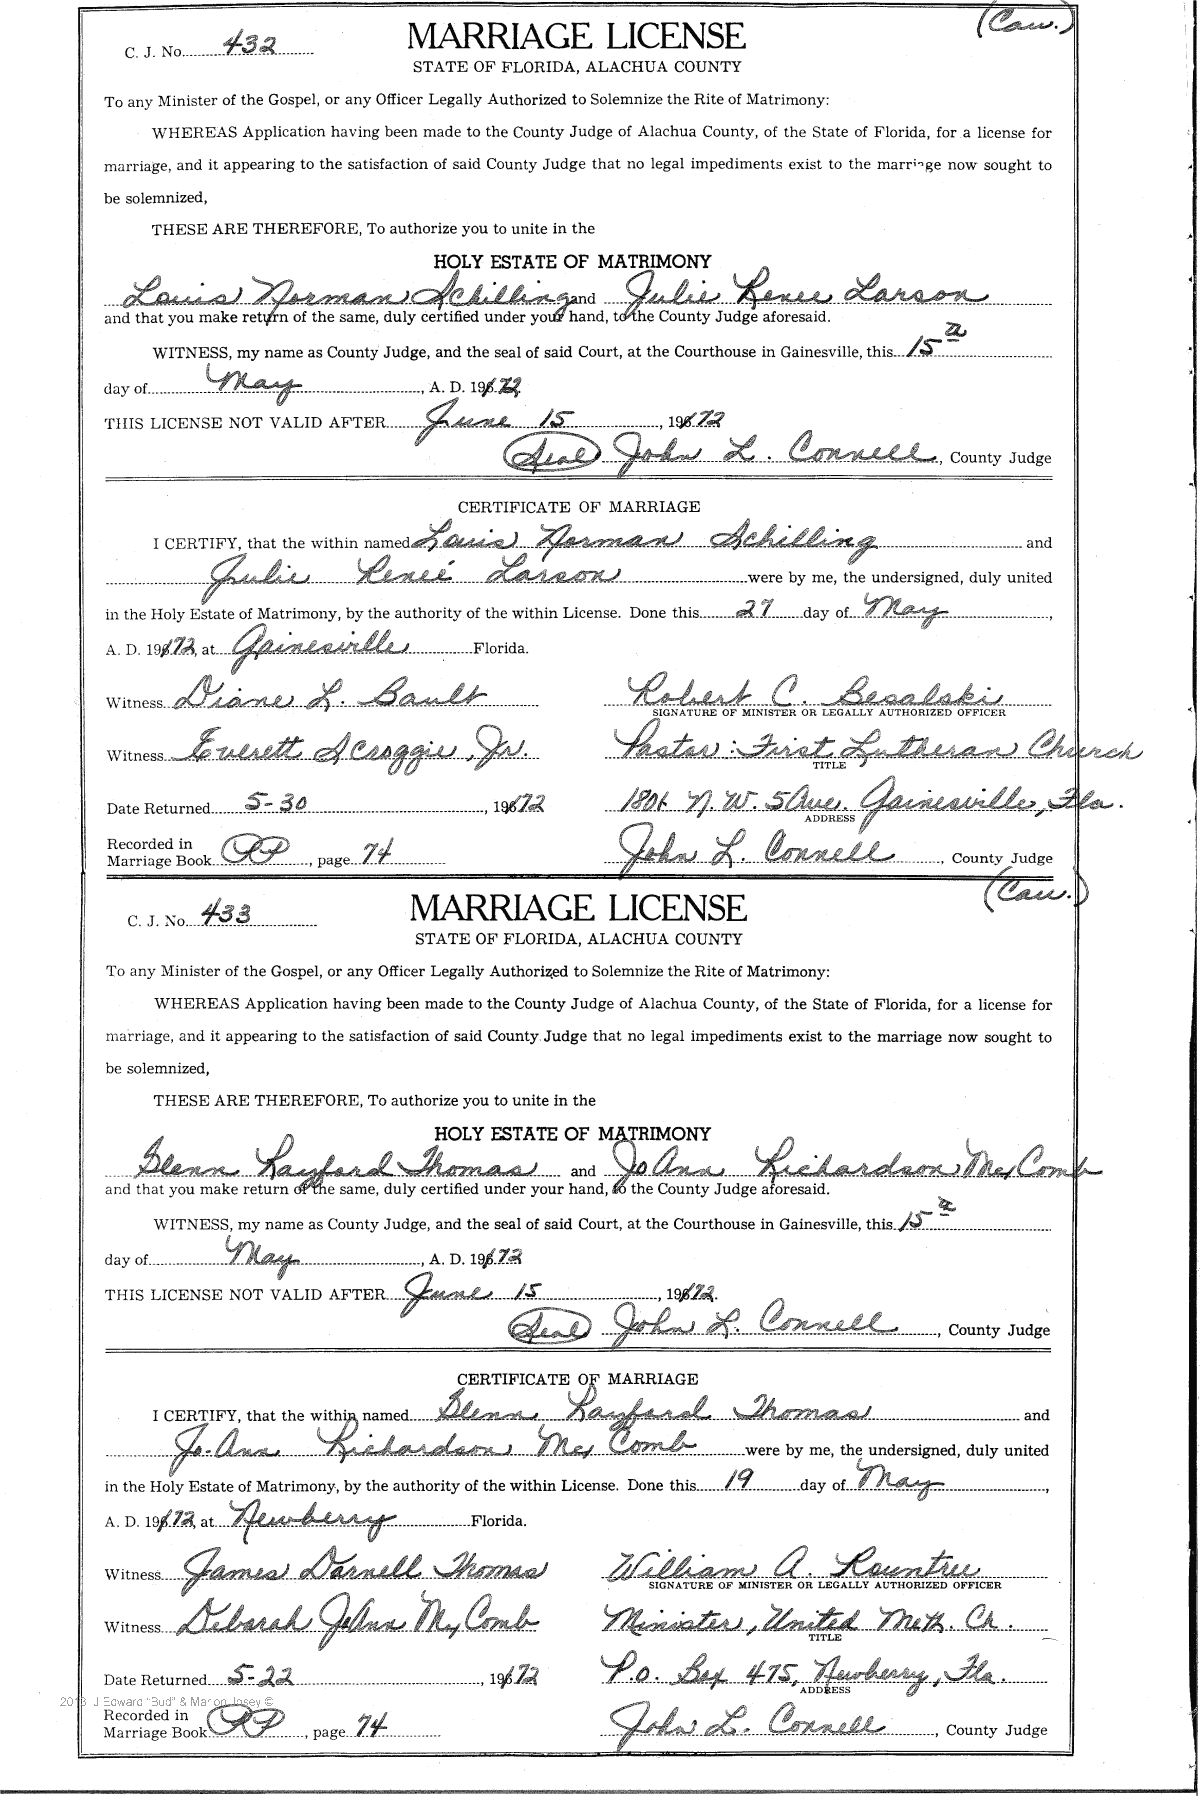 (Cau.)
C. J. No. 432 MARRIAGE LICENSE
STATE OF FLORIDA, ALACHUA COUNTY
To any Minister of the Gospel, or any Officer Legally Authorized to Solemnize the Rite of Matrimony:
WHEREAS Application having been made to the County Judge of Alachua County, of the State of Florida, for a license for
marriage, and it appearing to the satisfaction of said County Judge that no legal impediments exist to the marriage now sought to
be solemnized,
THESE ARE THEREFORE, To authorize you to unite in the
HOLY ESTATE OF MATRIMONY
Louis Norman Schilling and Julie Renee Larson
and that you make return of the same, duly certified under your hand, to the County Judge aforesaid.
WITNESS, my name as County Judge, and the seal of said Court, at the Courthouse in Gainesville, this 15
day of May, A. D. 1972
THIS LICENSE NOT VALID AFTER June 15, 1972
(Seal) John L. Connell, County Judge
CERTIFICATE OF MARRIAGE
I CERTIFY, that the within named Louis Norman Schilling and
Julie Reneé Larson were by me, the undersigned, duly united
in the Holy Estate of Matrimony, by the authority of the within License. Done this 27 day of May,
A. D. 1972, at Gainesville Florida.
Witness Diane L. Bault Robert C. Besalski
SIGNATURE OF MINISTER OR LEGALLY AUTHORIZED OFFICER
Witness Everett Scroggie, Jr. Pastor: First Lutheran Church
TITLE
Date Returned 5-30, 1972 1801 N.W. 5 Ave. Gainesville, Fla.
ADDRESS
Recorded in
Marriage Book RP, page 74 John L. Connell, County Judge
(Cau.)
C. J. No. 433 MARRIAGE LICENSE
STATE OF FLORIDA, ALACHUA COUNTY
To any Minister of the Gospel, or any Officer Legally Authorized to Solemnize the Rite of Matrimony:
WHEREAS Application having been made to the County Judge of Alachua County, of the State of Florida, for a license for
marriage, and it appearing to the satisfaction of said County Judge that no legal impediments exist to the marriage now sought to
be solemnized,
THESE ARE THEREFORE, To authorize you to unite in the
HOLY ESTATE OF MATRIMONY
Glenn Rayford Thomas and JoAnn Richardson McComb
and that you make return of the same, duly certified under your hand, to the County Judge aforesaid.
WITNESS, my name as County Judge, and the seal of said Court, at the Courthouse in Gainesville, this 15
day of May, A. D. 1972
THIS LICENSE NOT VALID AFTER June 15, 1972.
(Seal) John L. Connell, County Judge
CERTIFICATE OF MARRIAGE
I CERTIFY, that the within named Glenn Rayford Thomas and
Jo-Ann Richardson McComb were by me, the undersigned, duly united
in the Holy Estate of Matrimony, by the authority of the within License. Done this 19 day of May,
A. D. 1972, at Newberry Florida.
Witness James Darnell Thomas William A. Rountree
SIGNATURE OF MINISTER OR LEGALLY AUTHORIZED OFFICER
Witness Deborah JoAnn McComb Minister, United Meth. Ch.
TITLE
Date Returned 5-22, 1972 P.O. Box 475, Newberry, Fla.
ADDRESS
2013 J Edward "Bud" & Marion Josey ©
Recorded in
Marriage Book RP, page 74 John L. Connell, County Judge